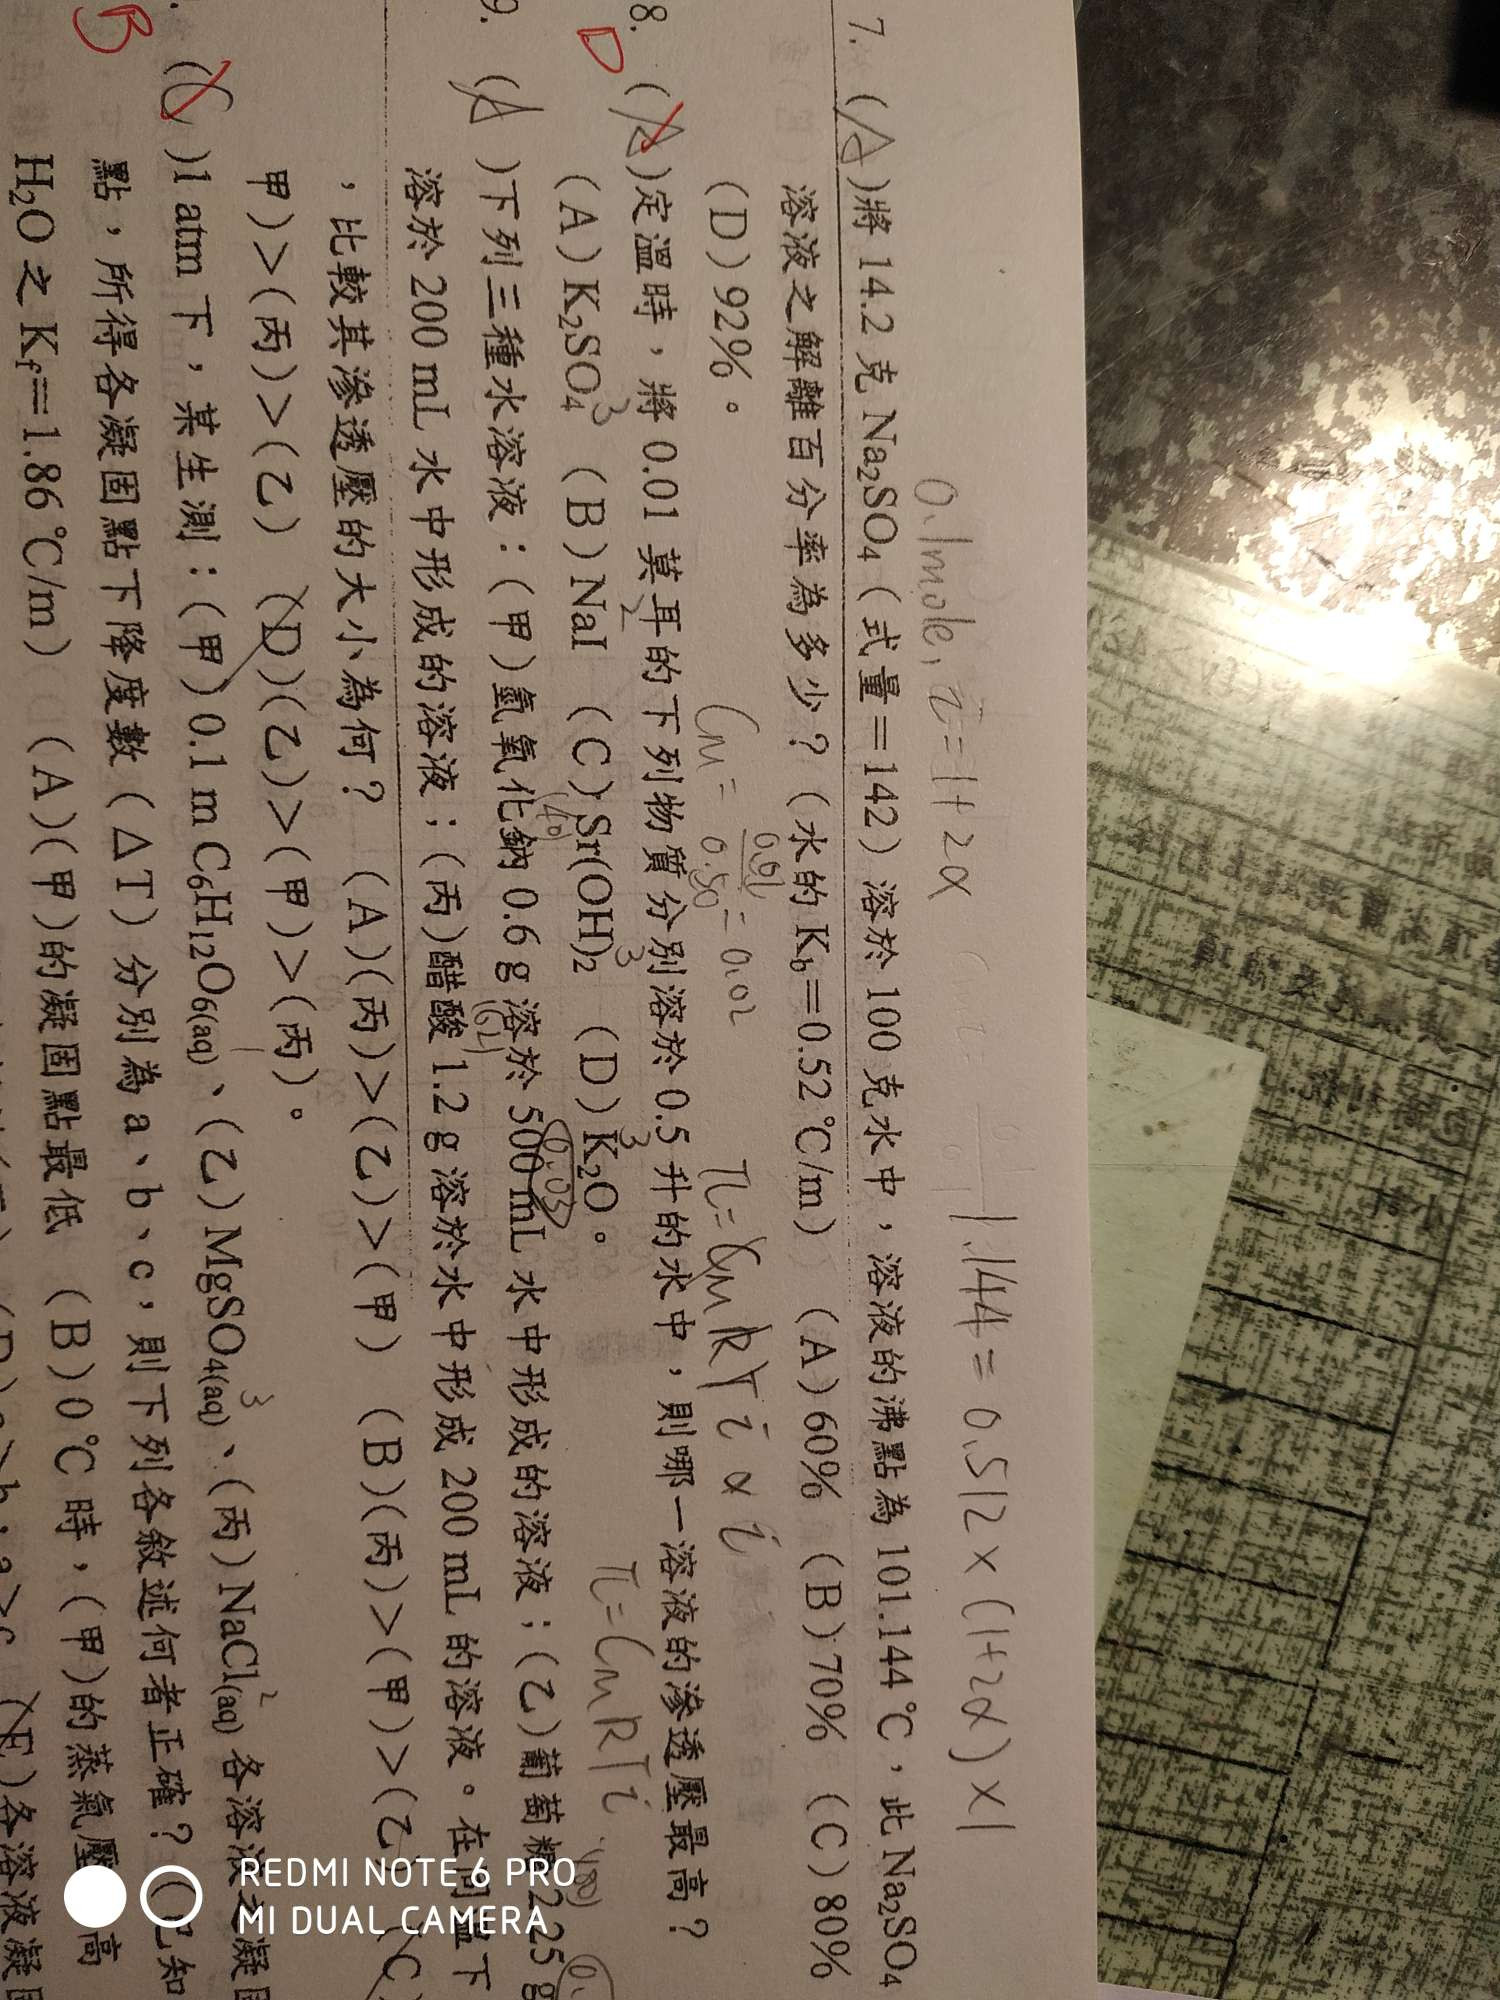 0.1mole, i=1+2α
1.144=0.512×(1+2α)×1
7. (A)將 14.2 克 Na₂SO₄(式量=142)溶於 100 克水中,溶液的沸點為 101.144 ℃,此 Na₂SO₄
溶液之解離百分率為多少?(水的 K_b=0.52 ℃/m) (A)60% (B)70% (C)80%
(D)92%。
C_M= 0.01/0.50 =0.02 π=C_M RTi α i
D
8. (A)定溫時,將 0.01 莫耳的下列物質分別溶於 0.5 升的水中,則哪一溶液的滲透壓最高?
(A)K₂SO₄ 3 (B)NaI 2 (C)Sr(OH)₂ 3 (D)K₂O 3。
π=C_M RTi
9. (A)下列三種水溶液:(甲)氫氧化鈉 0.6 g 溶於 500 mL 水中形成的溶液;(乙)葡萄糖 2.25 g
溶於 200 mL 水中形成的溶液;(丙)醋酸 1.2 g 溶於水中形成 200 mL 的溶液。在同溫下
,比較其滲透壓的大小為何? (A)(丙)>(乙)>(甲) (B)(丙)>(甲)>(乙) (C)
甲)>(丙)>(乙) (D)(乙)>(甲)>(丙)。
B
(C)1 atm 下,某生測:(甲)0.1 m C₆H₁₂O₆(aq)、(乙)MgSO₄(aq) 3、(丙)NaCl(aq) 2 各溶液之凝
點,所得各凝固點下降度數(ΔT)分別為 a、b、c,則下列各敘述何者正確?(已知
H₂O 之 K_f=1.86 ℃/m) (A)(甲)的凝固點最低 (B)0 ℃ 時,(甲)的蒸氣壓 高
(E)各溶液凝
REDMI NOTE 6 PRO
MI DUAL CAMERA